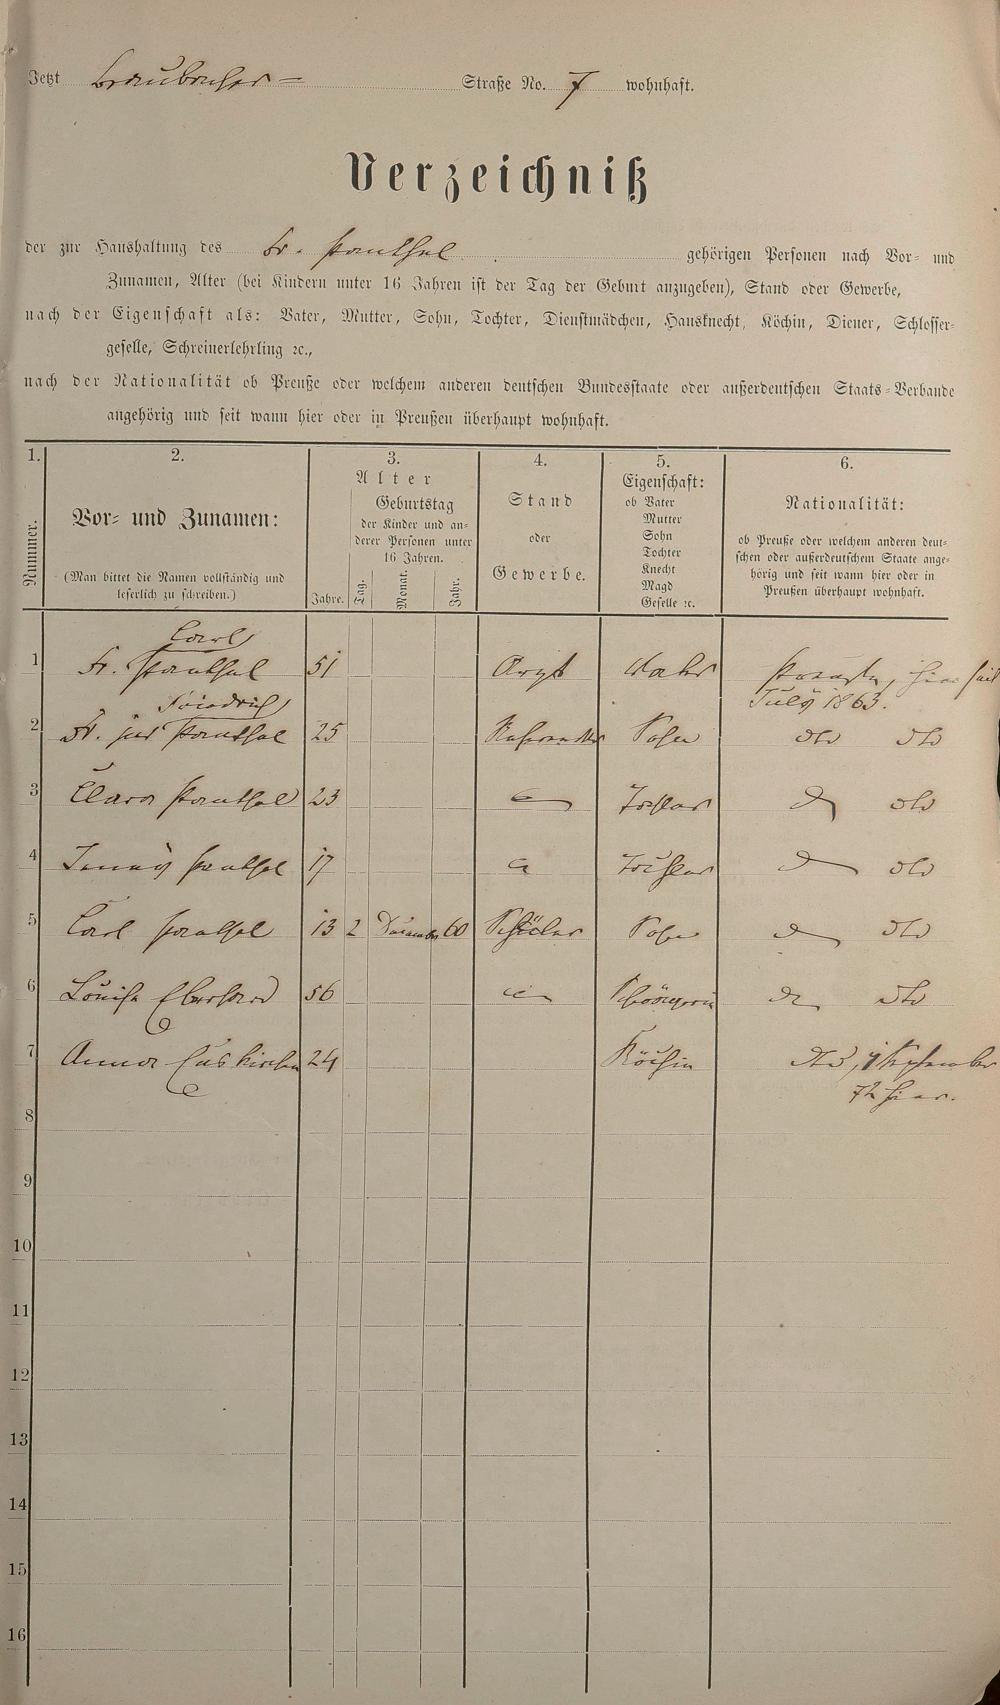 Jetzt Braubacher- Straße No. 7 wohnhaft.
Verzeichniß
der zur Haushaltung des Dr. Panthel gehörigen Personen nach Vor- und
Zunamen, Alter (bei Kindern unter 16 Jahren ist der Tag der Geburt anzugeben), Stand oder Gewerbe,
nach der Eigenschaft als: Vater, Mutter, Sohn, Tochter, Dienstmädchen, Hausknecht, Köchin, Diener, Schlosser-
geselle, Schreinerlehrling ꝛc.,
nach der Nationalität ob Preuße oder welchem anderen deutschen Bundesstaate oder außerdeutschen Staats-Verbande
angehörig und seit wann hier oder in Preußen überhaupt wohnhaft.
1. 2. 3. 4. 5. 6.
Nummer.
Vor- und Zunamen:
(Man bittet die Namen vollständig und
leserlich zu schreiben.)
Alter
Jahre.
Geburtstag
der Kinder und an-
derer Personen unter
16 Jahren.
Tag. Monat. Jahr.
Stand
oder
Gewerbe.
Eigenschaft:
ob Vater
Mutter
Sohn
Tochter
Knecht
Magd
Geselle ꝛc.
Nationalität:
ob Preuße oder welchem anderen deut-
schen oder außerdeutschem Staate ange-
hörig und seit wann hier oder in
Preußen überhaupt wohnhaft.
Carl
1 Dr. Panthel 51 Arzt Vater Preuße, hier seit
July 1863.
Friedrich
2 Dr. jur Panthel 25 Referendar Sohn dto dto
3 Clara Panthel 23 Tochter dto
4 Jenny Panthel 17 Tochter dto
5 Carl Panthel 13 2 December 60 Schüler Sohn dto
6 Louise Eberhard 56 Schwägerin dto
7 Anna Euskirchen 24 Köchin dto, 1 September
72 hier.
8
9
10
11
12
13
14
15
16